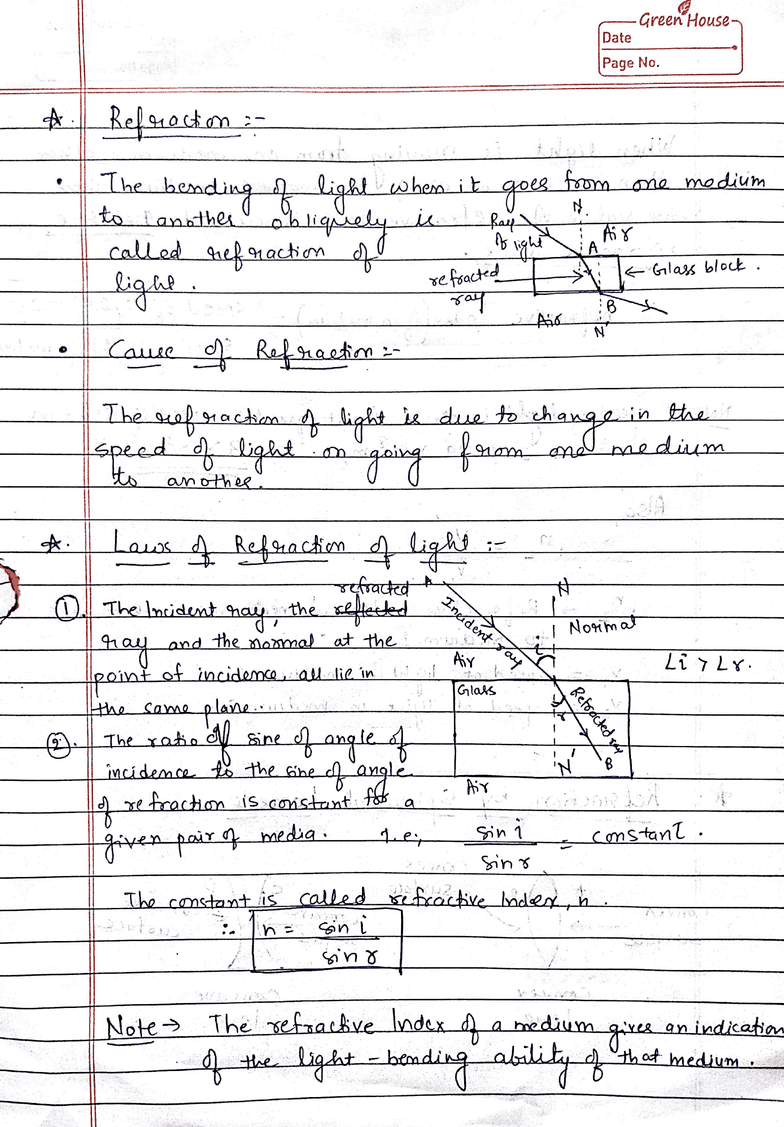 Green House
Date
Page No.
☆. Refraction :-
• The bending of light when it goes from one medium
to another obliquely is
called refraction of
light.
N
Ray
of light
Air
A
refracted
ray
Glass block.
B
Air
N'
• Cause of Refraction :-
The refraction of light is due to change in the
speed of light on going from one medium
to another.
☆. Laws of Refraction of light :-
① The Incident ray, the ~~reflected~~ refracted
ray and the normal at the
point of incidence, all lie in
the same plane.
A
Incident ray
N
Normal
i
Air
∠i > ∠r.
Glass
r
Refracted ray
N'
B
Air
② The ratio of sine of angle of
incidence to the sine of angle
of refraction is constant for a
given pair of media. i.e; sin i / sin r = constant.
The constant is called refractive Index, n.
∴ n = sin i / sin r
Note → The refractive Index of a medium gives an indication
of the light-bending ability of that medium.